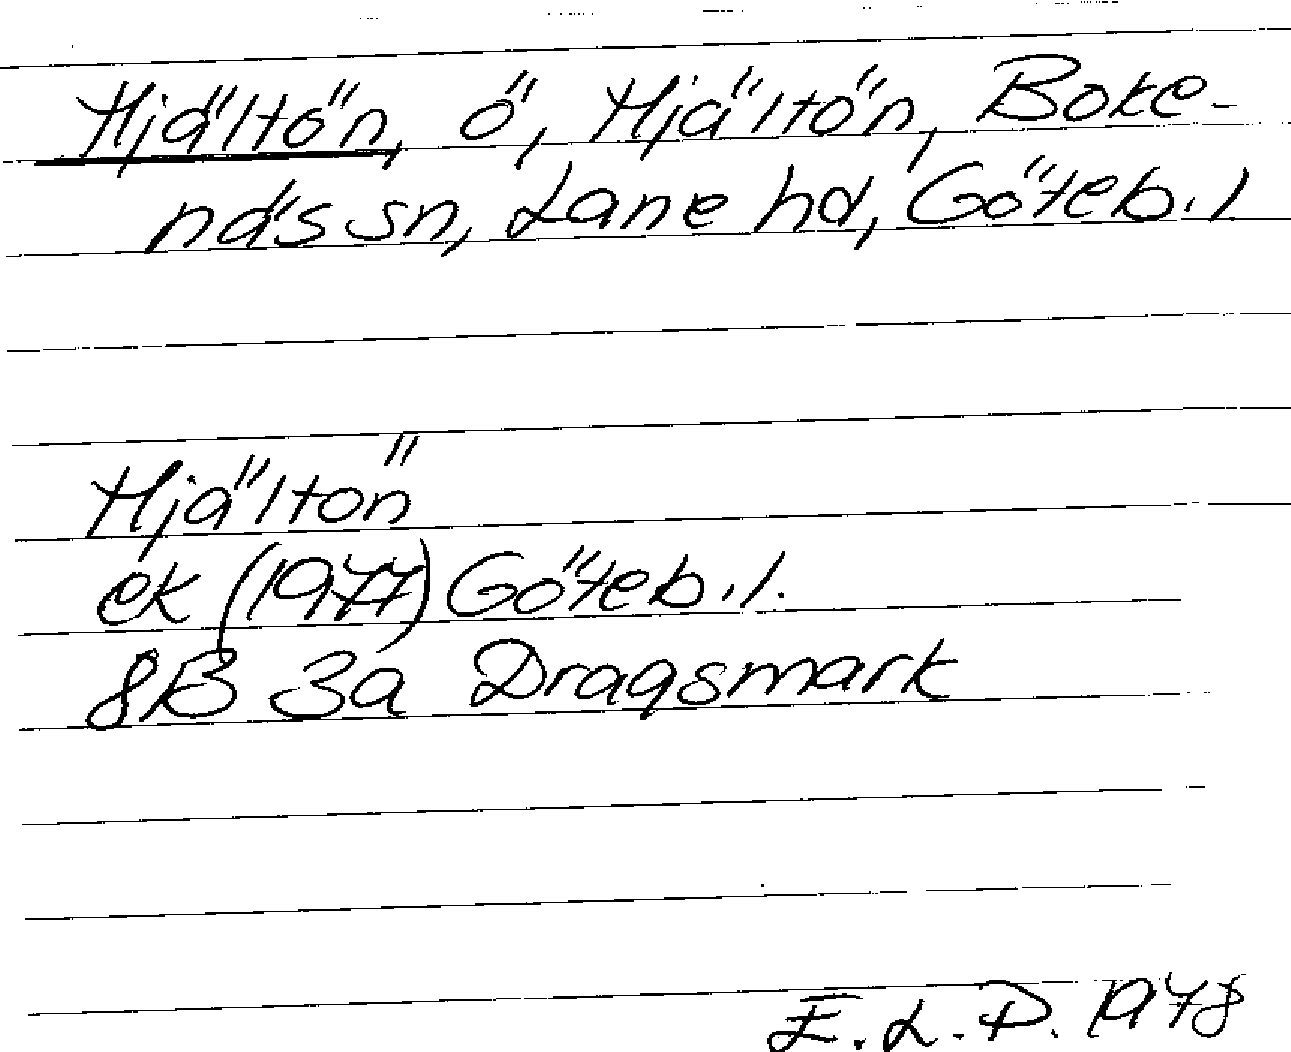 Hjältön, ö, Hjältön, Boke-
näs sn, Lane hd, Göteb.l
Hjältön
ek (1977) Göteb.l.
8B 3a Dragsmark
E.L.P. 1978